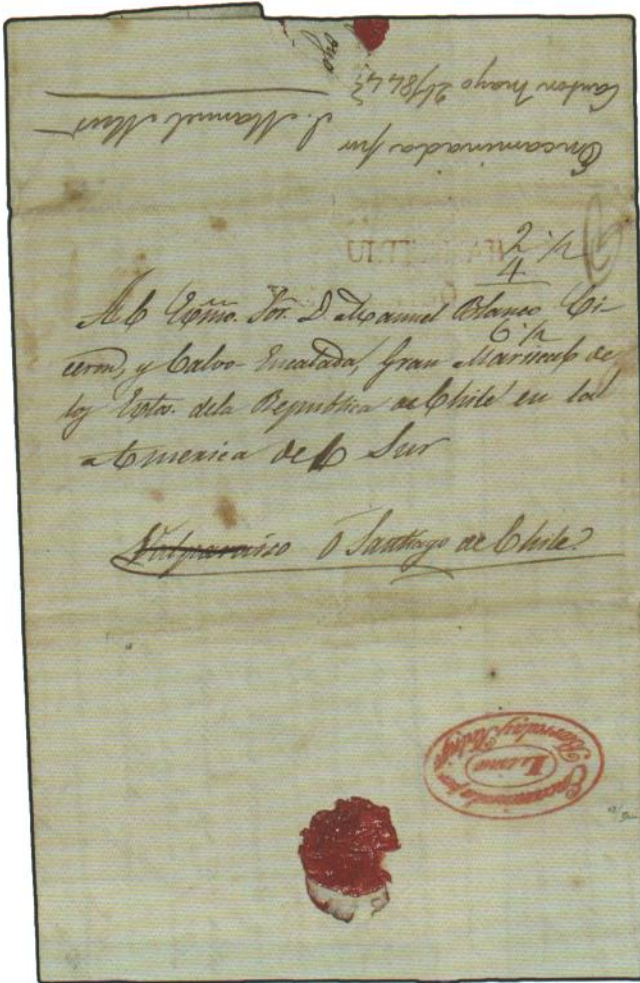 Encaminada por
S. Manuel
Canton Mayo 21/844
2 ½
4
6 ½
Al Exmo. Sor. D. Manuel Blanco Ci-
ceron, y Calvo Encalada, Gran Mariscal de
los Extos. dela Republica de Chile en la
America del Sur
Valparaiso ó Santiago de Chile
Encaminada por
Lima